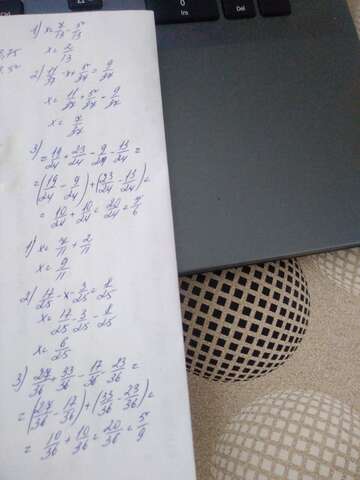 1) x = 7/13 - 5/13
x = 2/13
2) 11/27 - x + 5/27 = 9/27
x = 11/27 + 5/27 - 9/27
x = 7/27
3) = 19/24 + 23/24 - 9/24 - 13/24 =
= (19/24 - 9/24) + (23/24 - 13/24) =
= 10/24 + 10/24 = 20/24 = 5/6
1) x = 7/11 + 2/11
x = 9/11
2) 17/25 - x - 3/25 = 8/25
x = 17/25 - 3/25 - 8/25
x = 6/25
3) 27/36 + 33/36 - 17/36 - 23/36 =
= (27/36 - 17/36) + (33/36 - 23/36) =
= 10/36 + 10/36 = 20/36 = 5/9